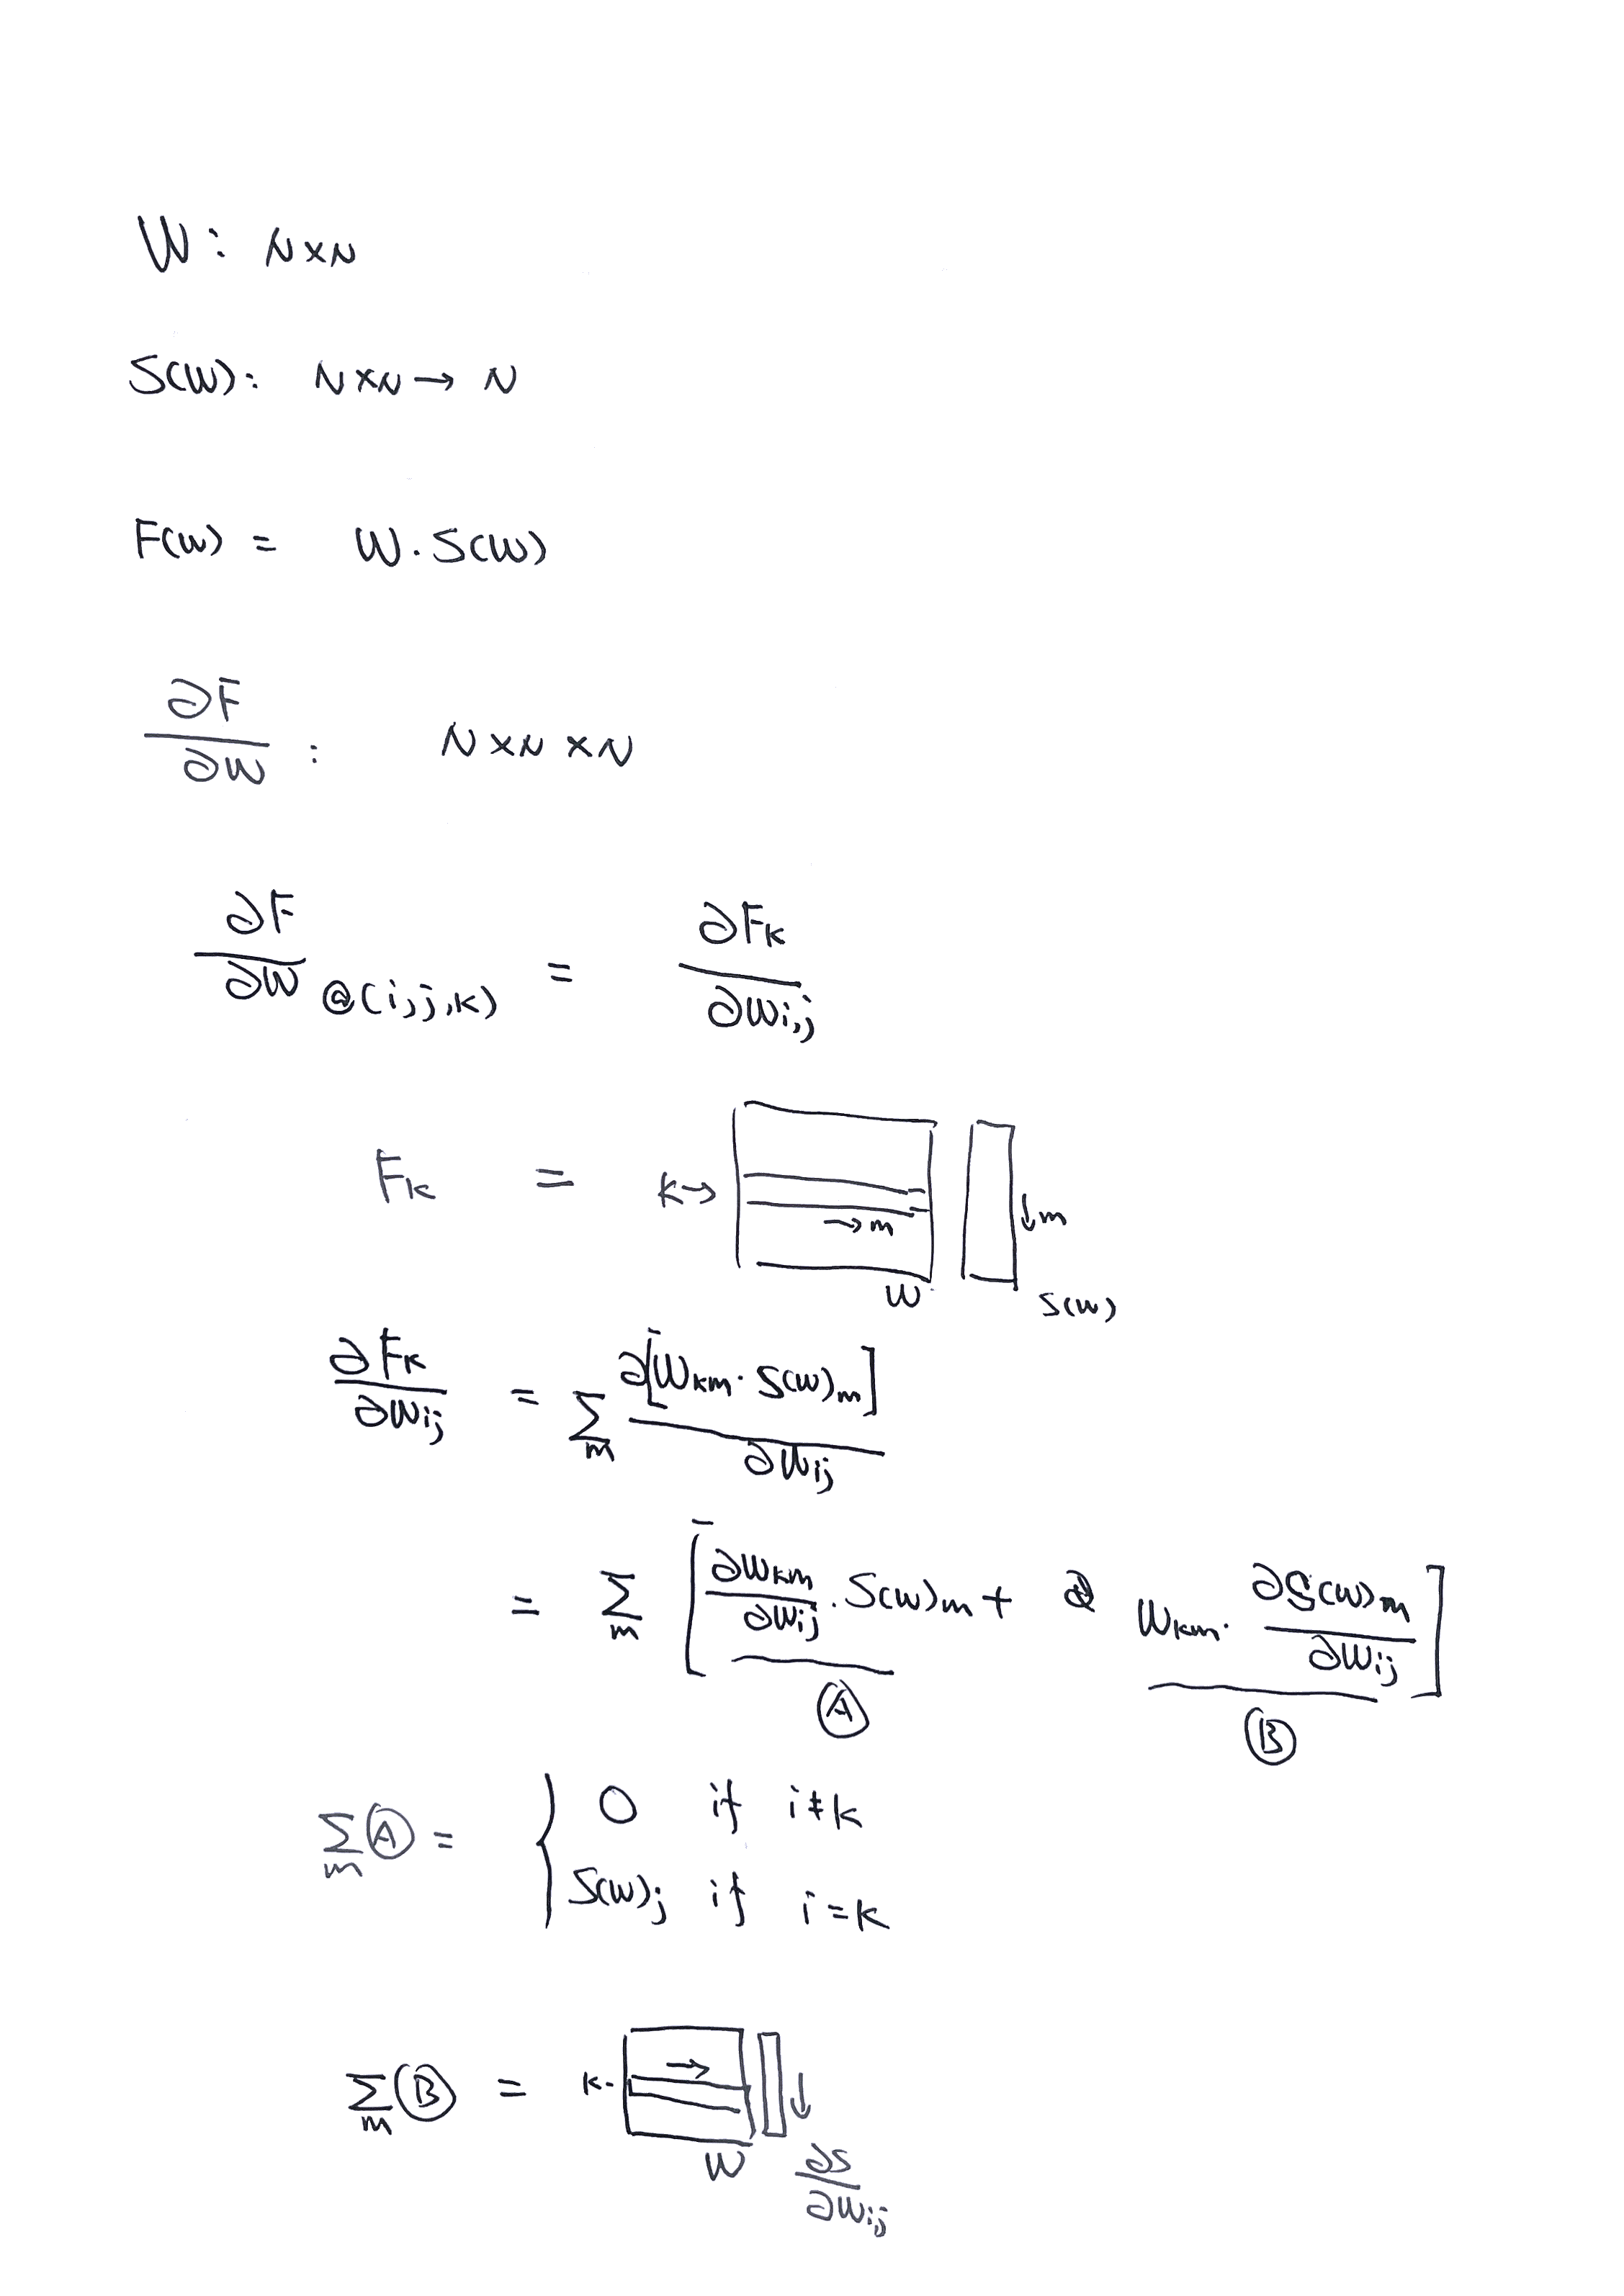 W: N×N
S(W): N×N → N
F(W) = W·S(W)
∂F/∂W : N×N×N
∂F/∂W @(i,j,k) = ∂Fk/∂Wi,j
Fk = k→ →m ↓m
W S(W)
∂Fk/∂Wij = Σm ∂[Wkm·S(W)m]/∂Wij
= Σm [∂Wkm/∂Wij · S(W)m + ∂ Wkm· ∂S(W)m/∂Wij]
Ⓐ Ⓑ
ΣmⒶ = { 0 if i≠k
S(W)j if i=k
ΣmⒷ = k- → ↓
W ∂S/∂Wij